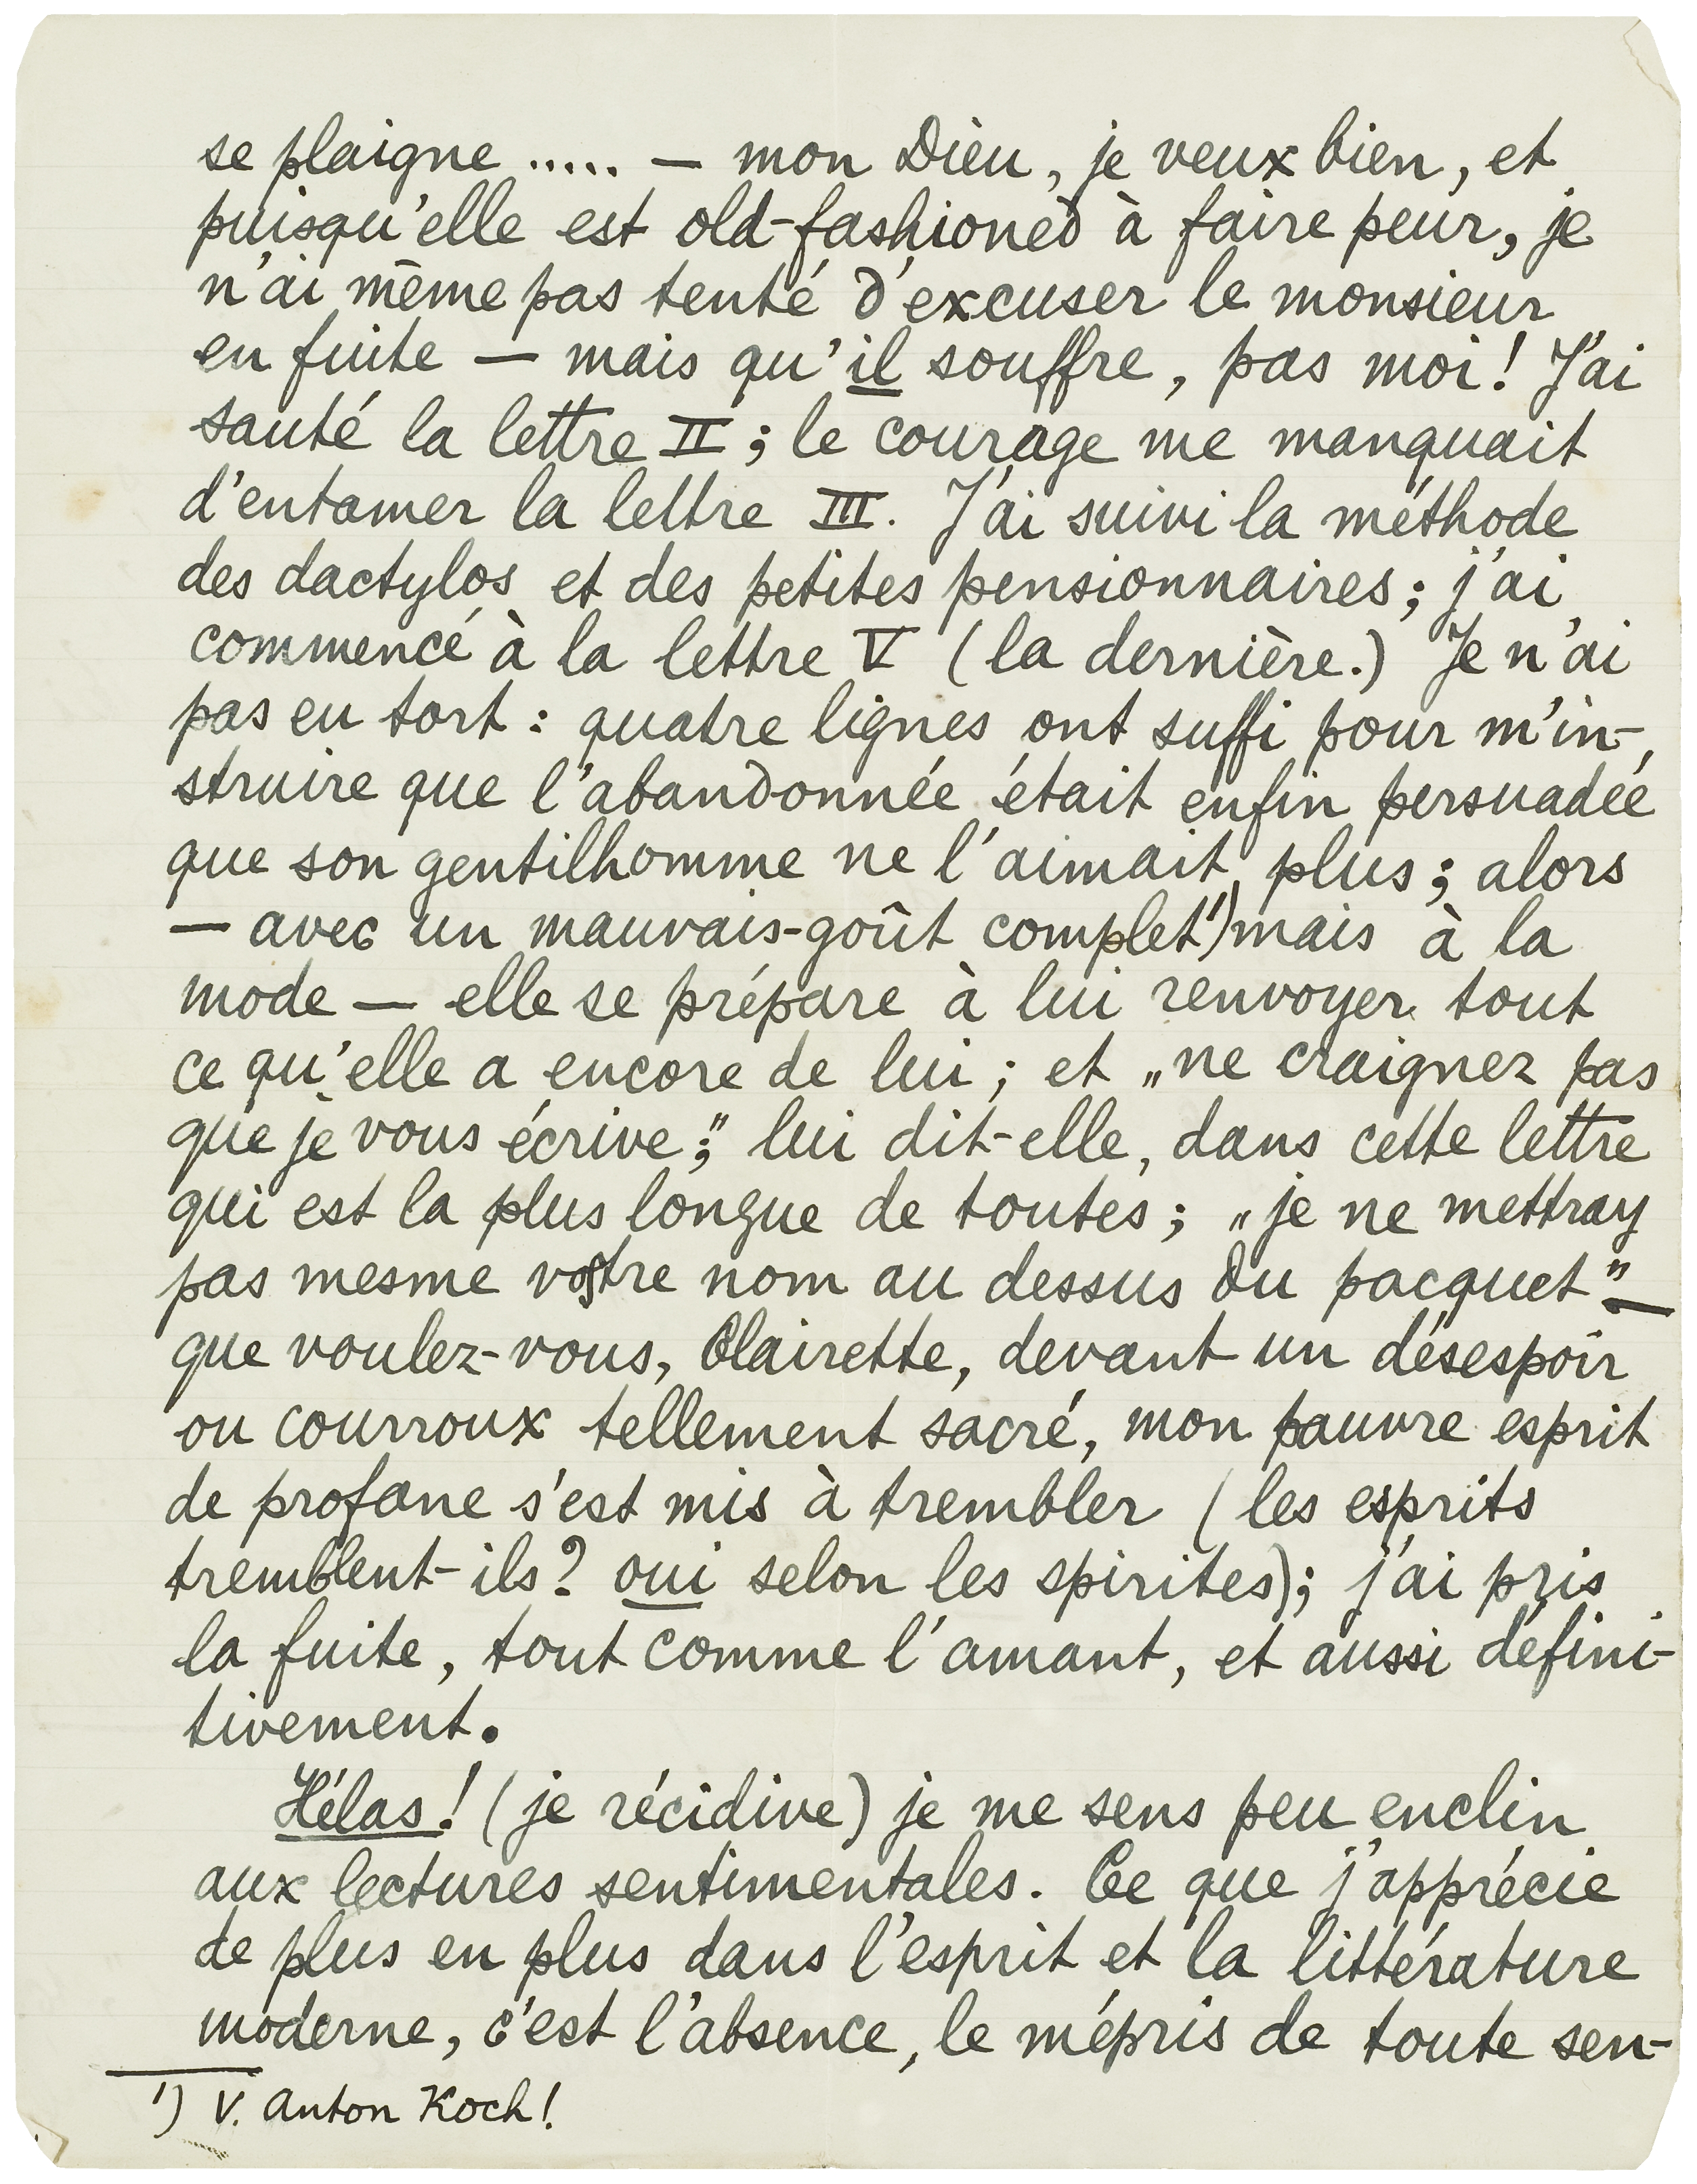 se plaigne ..... — mon Dieu, je veux bien, et
puisqu'elle est old-fashioned à faire peur, je
n'ai même pas tenté d'excuser le monsieur
en fuite — mais qu'il souffre, pas moi! J'ai
sauté la lettre II; le courage me manquait
d'entamer la lettre III. J'ai suivi la méthode
des dactylos et des petites pensionnaires; j'ai
commencé à la lettre V (la dernière.) Je n'ai
pas eu tort: quatre lignes ont suffi pour m'in-
struire que l'abandonnée était enfin persuadée
que son gentilhomme ne l'aimait plus; alors
— avec un mauvais-goût complet¹) mais à la
mode — elle se prépare à lui renvoyer tout
ce qu'elle a encore de lui; et „ne craignez pas
que je vous écrive;" lui dit-elle, dans cette lettre
qui est la plus longue de toutes; „je ne mettray
pas mesme vostre nom au dessus du pacquet" —
que voulez-vous, Clairette, devant un désespoir
ou courroux tellement sacré, mon pauvre esprit
de profane s'est mis à trembler (les esprits
tremblent-ils? oui selon les spirites); j'ai pris
la fuite, tout comme l'amant, et aussi défini-
tivement.
Hélas! (je récidive) je me sens peu enclin
aux lectures sentimentales. Ce que j'apprécie
de plus en plus dans l'esprit et la littérature
moderne, c'est l'absence, le mépris de toute sen-
¹) V. Anton Koch!